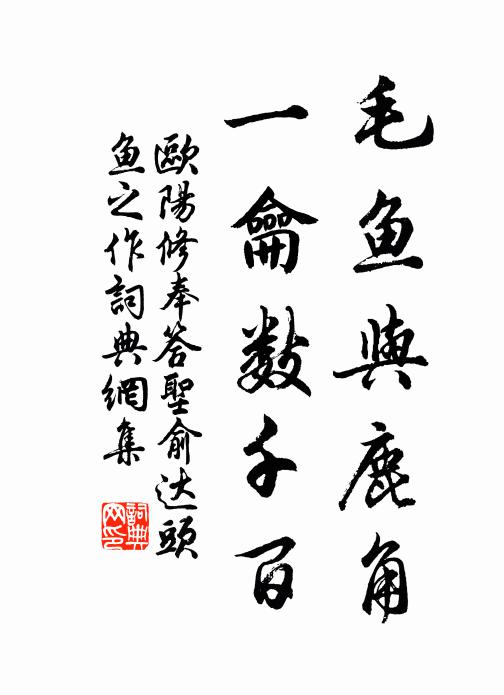 毛鱼與鹿角
一龠數千百
歐陽修奉答聖俞达頭
鱼之作詞典網集
詞典
网印